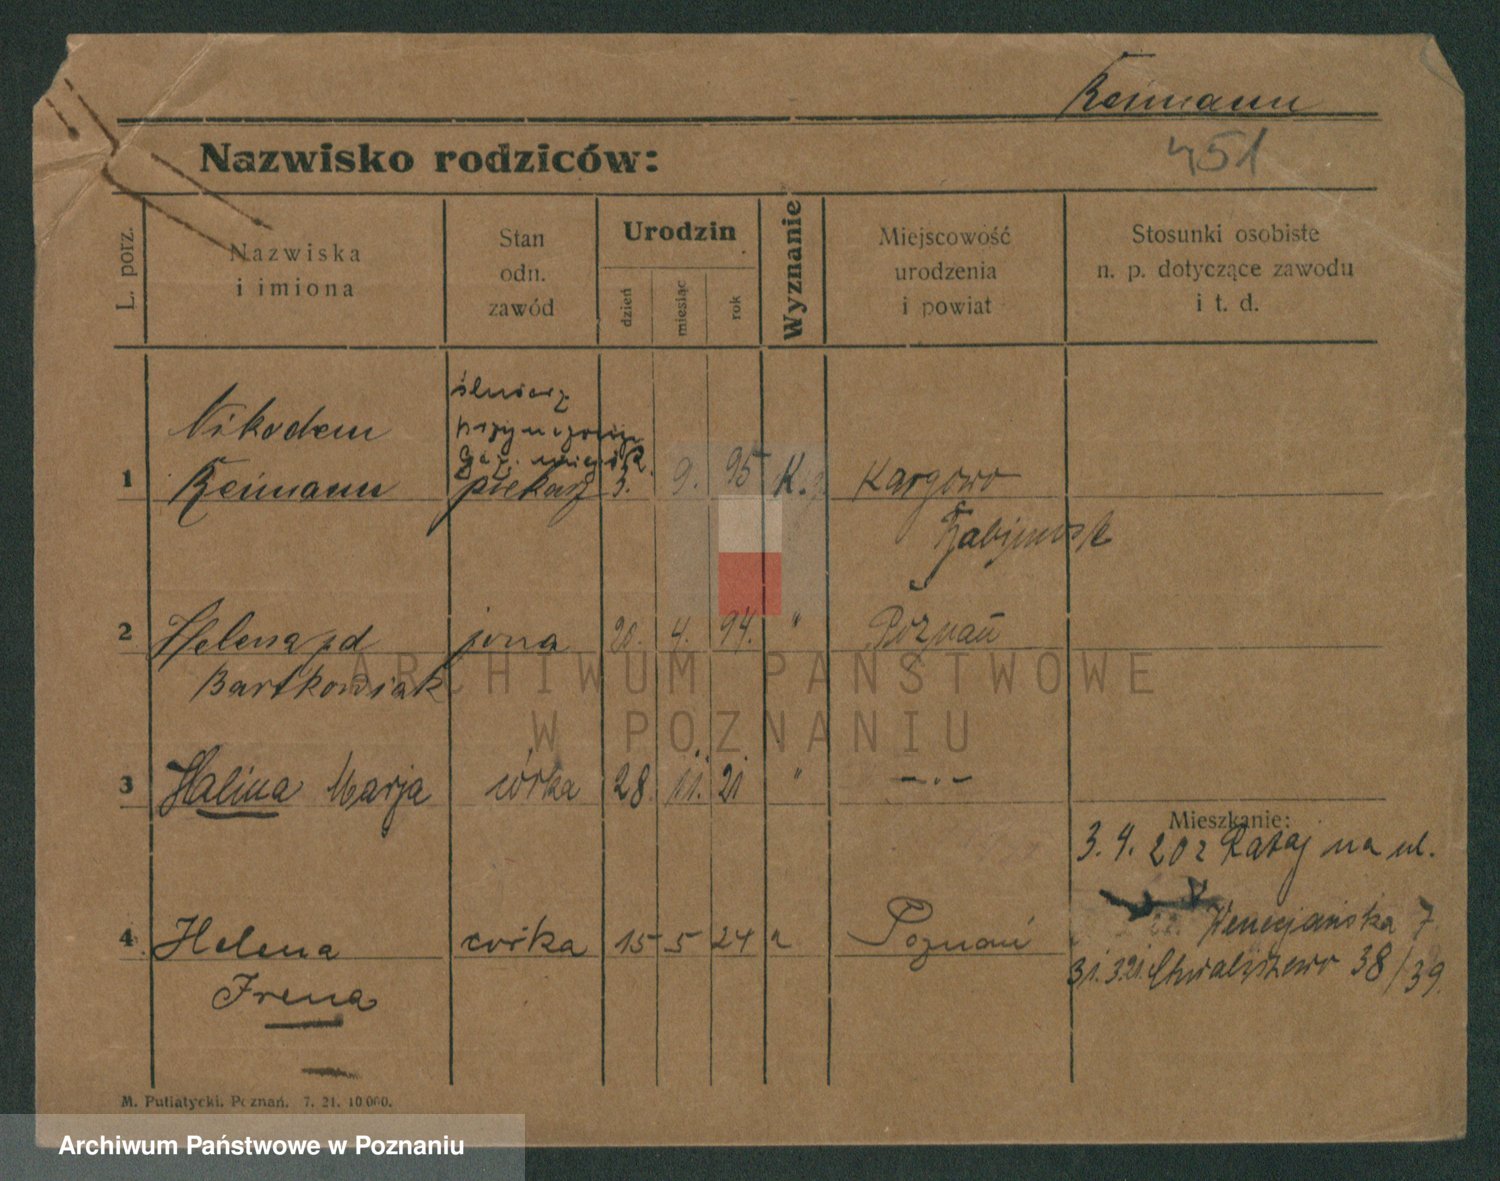 Reimann
451
Nazwisko rodziców:
L. porz.
Nazwiska
i imiona
Stan
odn.
zawód
Urodzin
dzień
miesiąc
rok
Wyznanie
Miejscowość
urodzenia
i powiat
Stosunki osobiste
n. p. dotyczące zawodu
i t. d.
Nikodem
1 Reimann piekarz 3. 9. 95 K. Kargowo
2 Helena zd żona 20. 4. 94. " Poznań
Bartkowiak
3 Halina Marja córka 28. 11. 21 " -.-
Mieszkanie:
3.4.20 z Rataj na ul.
Wenecjańska 7
4 Helena córka 15 5 24 Poznań
31.3.21. Chwaliszewo 38/39.
Irena
M. Putiatycki, Poznań. 7. 21. 10000.
ARCHIWUM PAŃSTWOWE
W POZNANIU
Archiwum Państwowe w Poznaniu